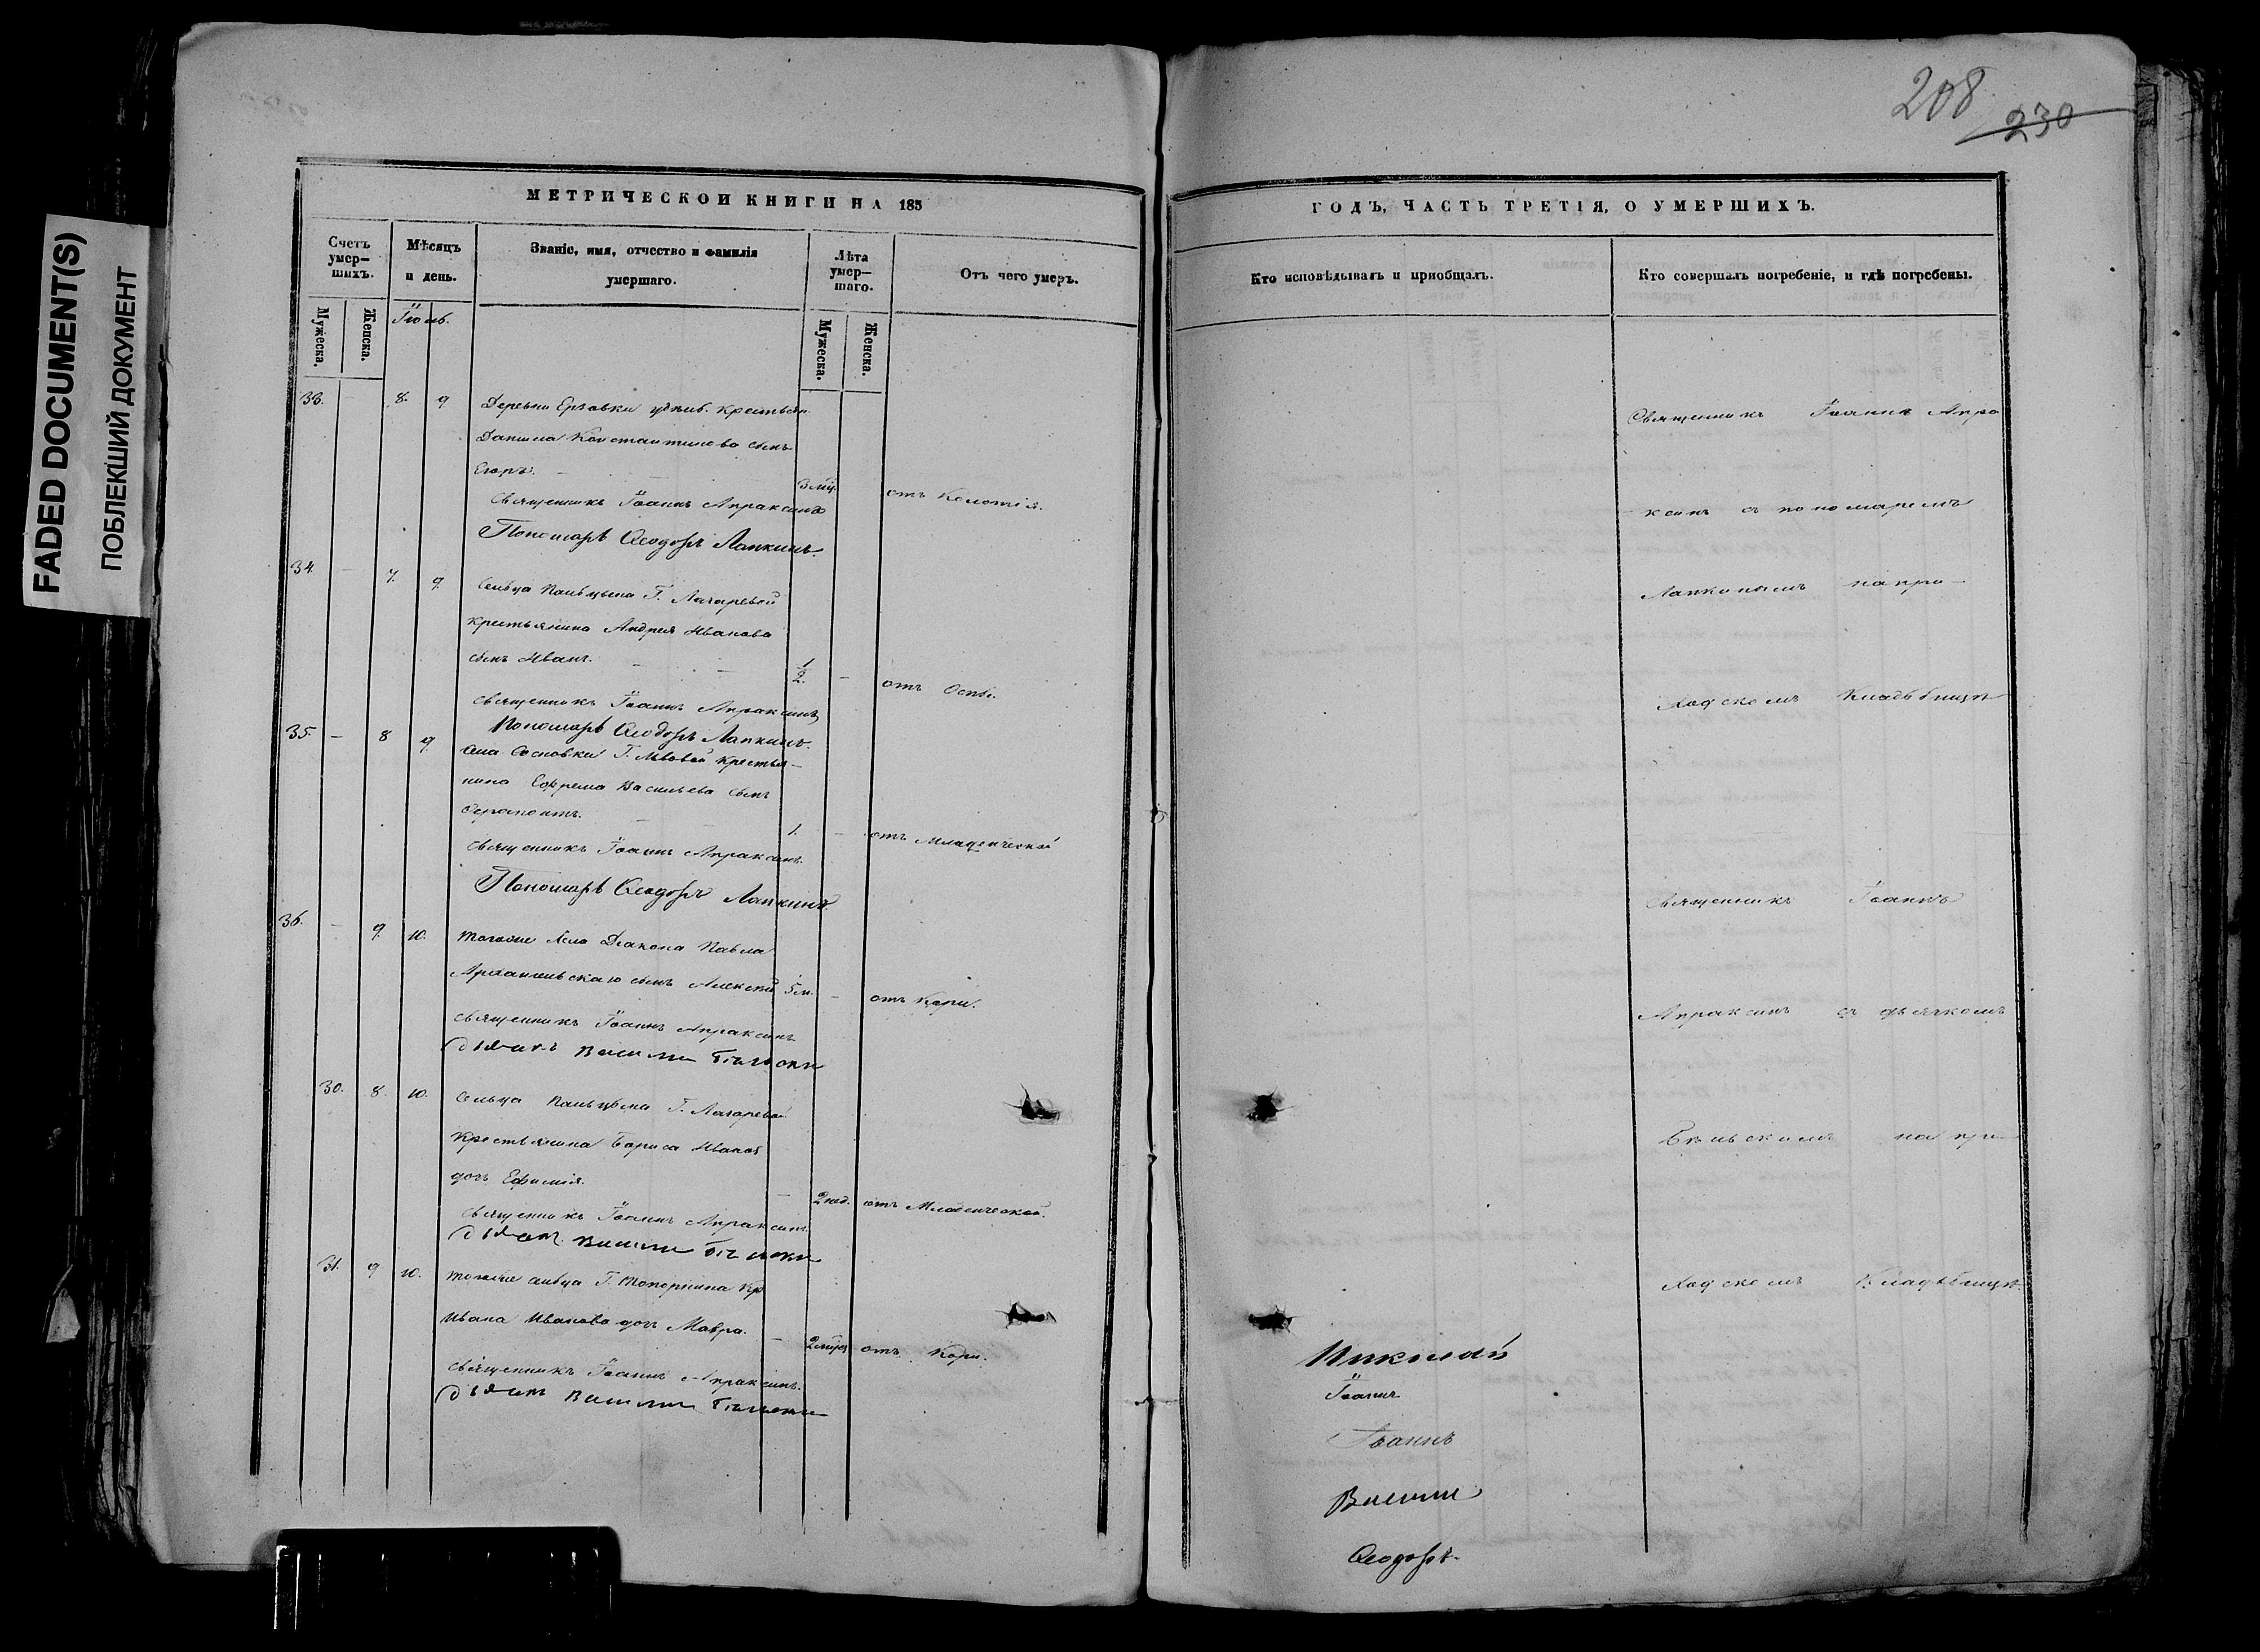 FADED DOCUMENT(S)
ПОБЛЕКШИЙ ДОКУМЕНТ
208
230
МЕТРИЧЕСКОЙ КНИГИ НА 185
ГОДЪ, ЧАСТЬ ТРЕТІЯ, О УМЕРШИХЪ.
Счетъ умер-шихъ.
Мужеска.
Женска.
Мѣсяцъ и день.
Званіе, имя, отчество и фамилія умершаго.
Лѣта умер-шаго.
Мужеска.
Женска.
Отъ чего умеръ.
Кто исповѣдывалъ и пріобщалъ.
Кто совершалъ погребеніе, и гдѣ погребены.
Іюль.
33. — 8. 9
Деревни крестьян.
Данила Константинова сынъ
Егоръ. —
отъ
Священникъ Іоаннъ Апраксинъ
Пономарь Ѳеодоръ Лапкинъ.
34. — 7. 9.
Сельца Пальцына Г. Лачаревой
крестьянина Андрея Иванова
сынъ Иванъ. — — 1/2. —
отъ Оспы.
Священникъ Іоаннъ Апраксинъ
Пономарь Ѳеодоръ Лапкинъ.
35. — 8 9.
Села Сосновки Г. Львовой крестья-
нина Ефрема Васильева сынъ
Ферапонтъ. — — 1. —
отъ младенческой
Священникъ Іоаннъ Апраксинъ.
Пономарь Ѳеодоръ Лапкинъ.
36. — 9. 10.
тогоже села Діакона Павла
Архангельскаго сынъ Алексѣй 5 м. —
отъ Кори.
Священникъ Іоаннъ Апраксинъ
дьячекъ Василій
30. 8. 10.
Сельца Пальцына Г. Лачаревой
Крестьянина Бориса Иванова
дочь Ефимія. — 2 нед.
отъ Младенческой.
Священникъ Іоаннъ Апраксинъ.
дьячекъ Василій
31. 9 10.
тогоже сельца Г. Топорнина Кр
Ивана Иванова дочь Мавра. —
отъ Кори.
Священникъ Іоаннъ Апраксинъ.
дьячекъ Василій
Священникъ Іоаннъ Апра
ксинъ съ пономаремъ
Лапкинымъ на при-
ходскомъ Кладбищѣ
Священникъ Іоаннъ
Апраксинъ съ дьячкомъ
на при-
ходскомъ Кладбищѣ.
Николай
Іоаннъ
Іоаннъ
Василій
Ѳеодоръ.